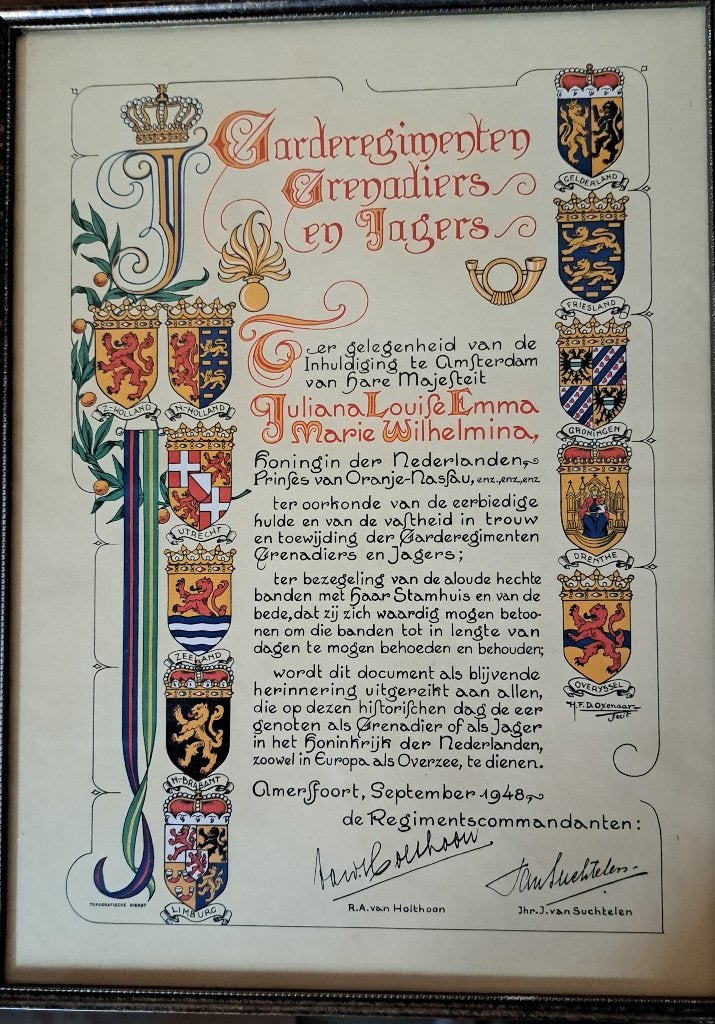 J
Garderegimenten
Grenadiers
en Jagers
Ter gelegenheid van de
Inhuldiging te Amsterdam
van Hare Majesteit
Juliana Louise Emma
Marie Wilhelmina,
Koningin der Nederlanden,
Prinses van Oranje-Nassau, enz., enz., enz
ter oorkonde van de eerbiedige
hulde en van de vastheid in trouw
en toewijding der Garderegimenten
Grenadiers en Jagers;
ter bezegeling van de aloude hechte
banden met Haar Stamhuis en van de
bede, dat zij zich waardig mogen betoo-
nen om die banden tot in lengte van
dagen te mogen behoeden en behouden;
wordt dit document als blijvende
herinnering uitgereikt aan allen,
die op dezen historischen dag de eer
genoten als Grenadier of als Jager
in het Koninkrijk der Nederlanden,
zoowel in Europa als Overzee, te dienen.
Amersfoort, September 1948
de Regimentscommandanten:
R.A. van Holthoon
Jhr. J. van Suchtelen
Z-HOLLAND
N-HOLLAND
UTRECHT
ZEELAND
N-BRABANT
LIMBURG
TOPOGRAFISCHE DIENST
GELDERLAND
FRIESLAND
GRONINGEN
DRENTHE
OVERYSSEL
H.F.D. Oxenaar
fecit